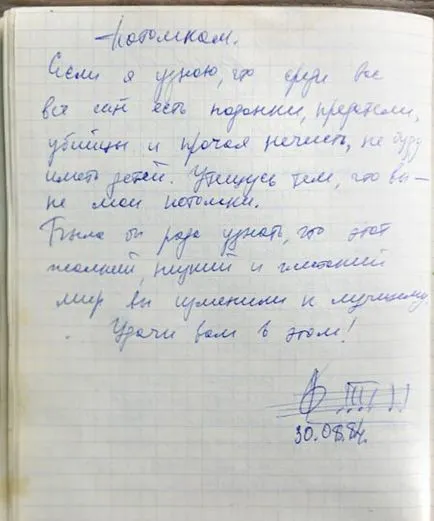 Потомкам.
Если я узнаю, что среди вас
все ещё есть подонки, предатели,
убийцы и прочая нечисть, не буду
иметь детей. Утешусь тем, что вы —
не мои потомки.
Была бы рада узнать, что этот
жалкий, и
мир вы изменили к лучшему.
Удачи вам в этом!
30.08.84.